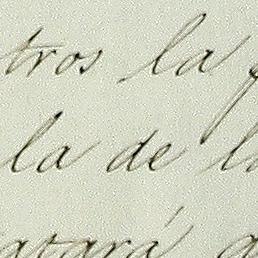 tros la
la de la
atará